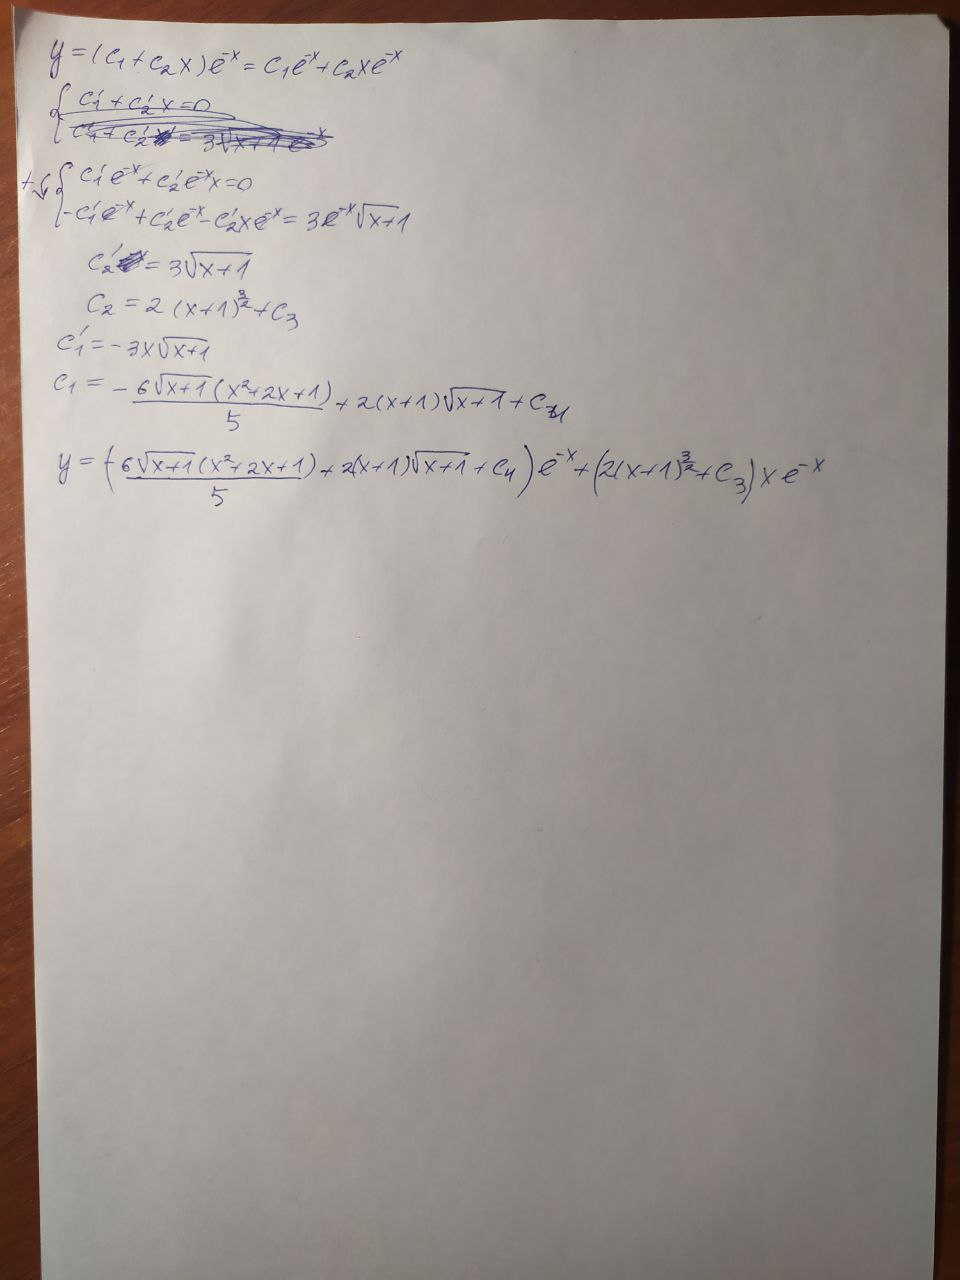 y = (C₁ + C₂x)e⁻ˣ = C₁e⁻ˣ + C₂xe⁻ˣ
{ C₁' + C₂'x = 0
C₁' + C₂' = 3√(x+1) e⁻ˣ
+↓ { C₁'e⁻ˣ + C₂'e⁻ˣx = 0
-C₁'e⁻ˣ + C₂'e⁻ˣ - C₂'xe⁻ˣ = 3e⁻ˣ√(x+1)
C₂' = 3√(x+1)
C₂ = 2(x+1)^(3/2) + C₃
C₁' = -3x√(x+1)
C₁ = - 6√(x+1)(x²+2x+1)/5 + 2(x+1)√(x+1) + C₄
y = (- 6√(x+1)(x²+2x+1)/5 + 2(x+1)√(x+1) + C₄)e⁻ˣ + (2(x+1)^(3/2) + C₃)xe⁻ˣ